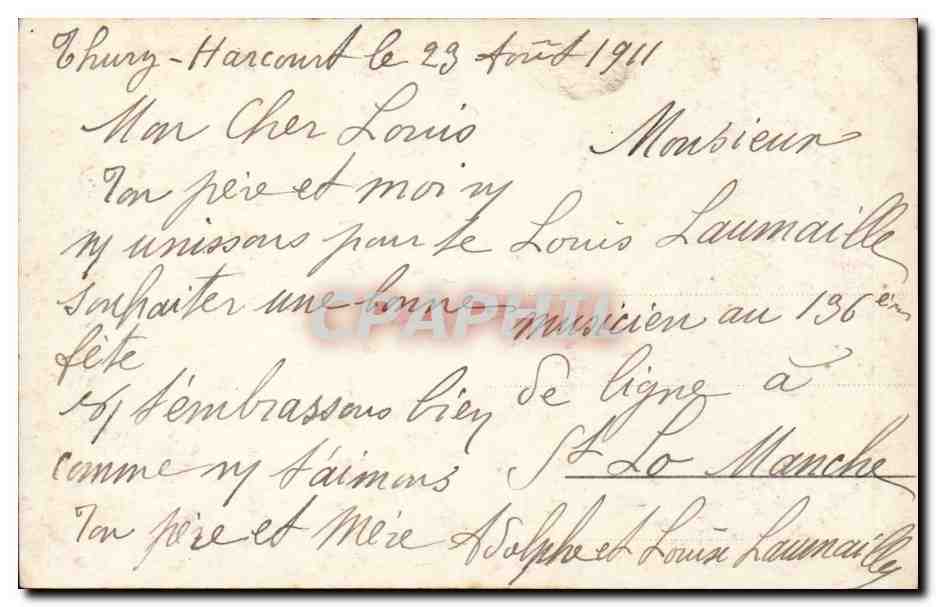 Thury-Harcourt le 23 Août 1911
Mon Cher Louis
Ton père et moi ns
ns unissons pour te
souhaiter une bonne
fête
ns t'embrassons bien
comme ns t'aimons
Ton père et mère Adolphe et Louise Laumaille
Monsieur
Louis Laumaille
musicien au 136 ème
de ligne à
St Lo Manche
CPAPHIL